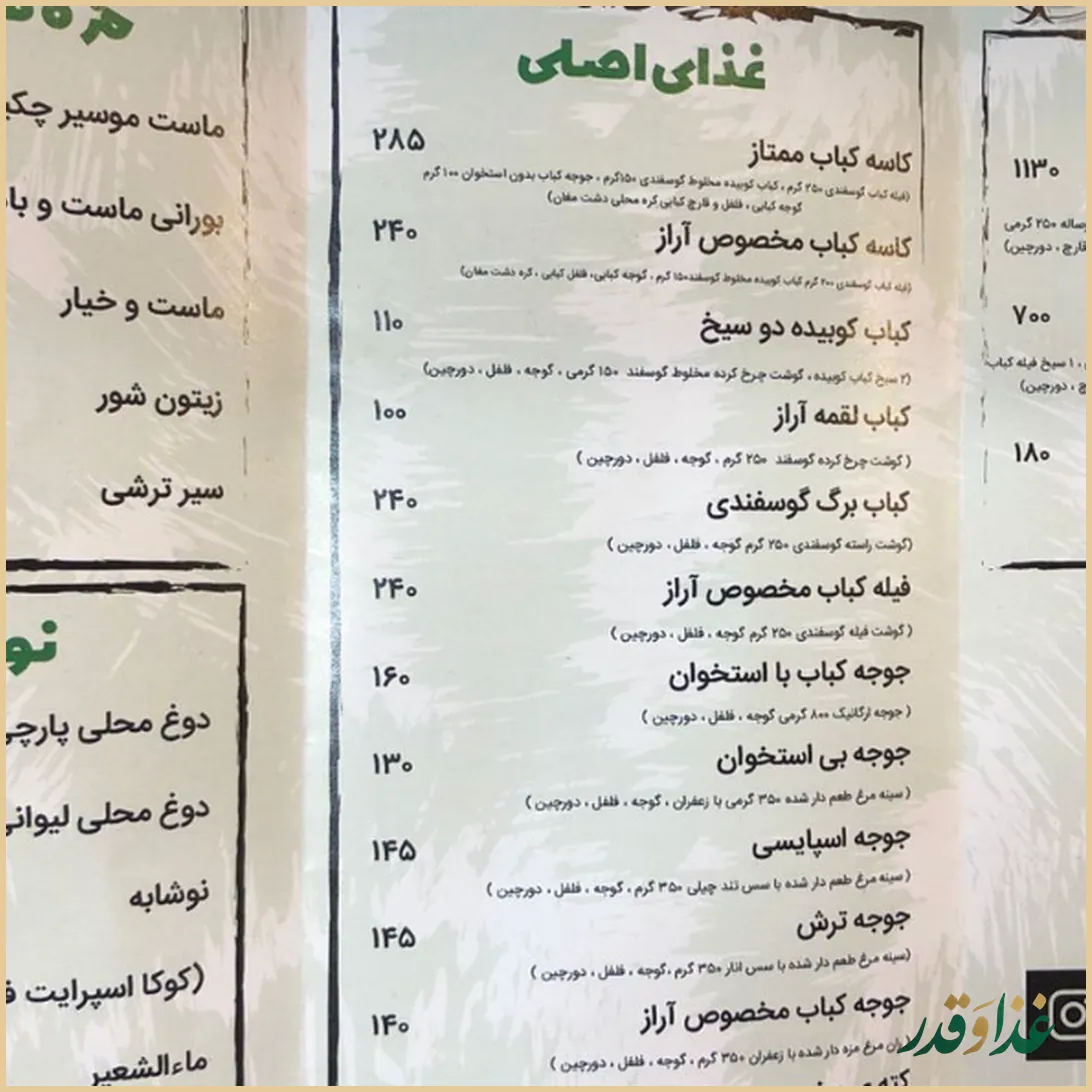 ۱۱۳۰
۲۵۰ گرمی
قارچ ، دورچین)
۷۰۰
، ۱ سیخ فیله کباب
، دورچین)
۱۸۰
غذای اصلی
کاسه کباب ممتاز ۲۸۵
(فیله کباب گوسفندی ۲۵۰ گرم ، کباب کوبیده مخلوط گوسفندی ۱۵۰گرم ، جوجه کباب بدون استخوان ۱۰۰ گرم
گوجه کبابی ، فلفل و قارچ کبابی کره محلی دشت مغان)
کاسه کباب مخصوص آراز ۲۴۰
(فیله کباب گوسفندی ۲۰۰ گرم کباب کوبیده مخلوط گوسفند۱۵۰ گرم ، گوجه کبابی، فلفل کبابی ، کره دشت مغان)
کباب کوبیده دو سیخ ۱۱۰
(۲ سیخ کباب کوبیده ، گوشت چرخ کرده مخلوط گوسفند ۱۵۰ گرمی ، گوجه ، فلفل ، دورچین)
کباب لقمه آراز ۱۰۰
( گوشت چرخ کرده گوسفند ۲۵۰ گرم ، گوجه ، فلفل ، دورچین )
کباب برگ گوسفندی ۲۴۰
(گوشت راسته گوسفندی ۲۵۰ گرم گوجه ، فلفل ، دورچین )
فیله کباب مخصوص آراز ۲۴۰
( گوشت فیله گوسفندی ۲۵۰ گرم گوجه ، فلفل ، دورچین )
جوجه کباب با استخوان ۱۶۰
( جوجه ارگانیک ۸۰۰ گرمی گوجه ، فلفل ، دورچین )
جوجه بی استخوان ۱۳۰
( سینه مرغ طعم دار شده ۳۵۰ گرمی با زعفران ، گوجه ، فلفل ، دورچین )
جوجه اسپایسی ۱۴۵
( سینه مرغ طعم دار شده با سس تند چیلی ۳۵۰ گرم ، گوجه ، فلفل ، دورچین )
جوجه ترش ۱۴۵
(سینه مرغ طعم دار شده با سس انار ۳۵۰ گرم ،گوجه ، فلفل ، دورچین )
جوجه کباب مخصوص آراز ۱۴۰
ران مرغ مزه دار شده با زعفران ۳۵۰ گرم ، گوجه ، فلفل ، دورچین )
ماست موسیر چکی
بورانی ماست و باد
ماست و خیار
زیتون شور
سیر ترشی
نو
دوغ محلی پارچی
دوغ محلی لیوانی
نوشابه
(کوکا اسپرایت ف
ماءالشعیر
غذا وَ قدر